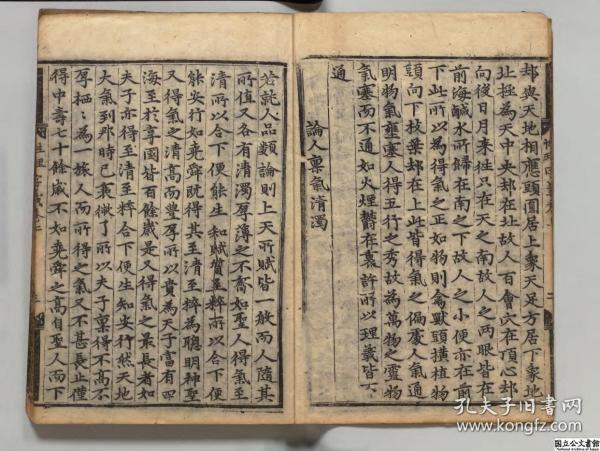 却與天地相應頭圓居上象天足方居下象地
北極為天中央却在北故人百會穴在頂心却
向後日月来徃只在天之南故人之两眼皆在
前海鹹水所歸在南之下故人之小便亦在前
下此所以為得氣之正如物則禽獸頭横植物
頭向下枝葉却在上此皆得氣之偏處人氣通
明物氣壅塞人得五行之秀故為萬物之靈物
氣塞而不通如火煙欝在裏許所以理義皆不
通
論人稟氣清濁
若就人品類論則上天所賦皆一般而人隨其
所值又各有清濁厚薄之不齊如聖人得氣至
清所以合下便能生知賦質至粹所以合下便
能安行如堯舜既得其至清至粹為聰明神聖
又得氣之清高而豊厚所以貴為天子富有四
海至於享國皆百餘歳是又得氣之最長者如
夫子亦得至清至粹合下便生知安行然天地
大氣到那時已衰微了所以夫子稟得不高不
厚栖栖為一旅人而所得之氣又不甚長止僅
得中壽七十餘歳不如堯舜之高自聖人而下
孔夫子旧书网
www.kongfz.com
国立公文書館
National Archives of Japan